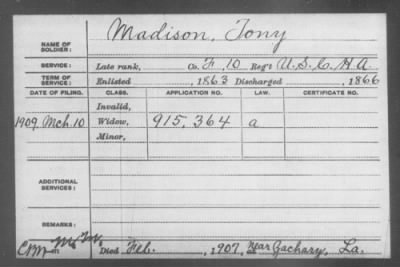 Madison, Tony
NAME OF SOLDIER:
SERVICE: Late rank, Co. F, 10 Reg't U.S.C.H.A.
TERM OF SERVICE: Enlisted , 1863 Discharged , 1866
DATE OF FILING. CLASS. APPLICATION NO. LAW. CERTIFICATE NO.
Invalid,
1909. Mch. 10 Widow, 915,364 a
Minor,
ADDITIONAL SERVICES:
REMARKS:
Died Feb. , 1907, near Zachary, La.